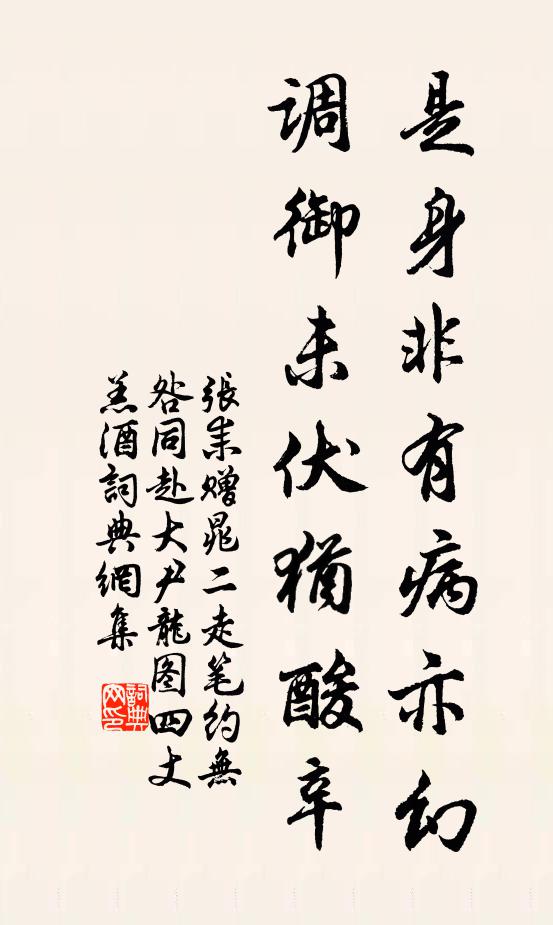 是身非有病亦幻
调御未伏猶酸辛
張耒贈晁二走笔约無
咎同赴大尹龍图四丈
羔酒詞典網集
詞典
网印